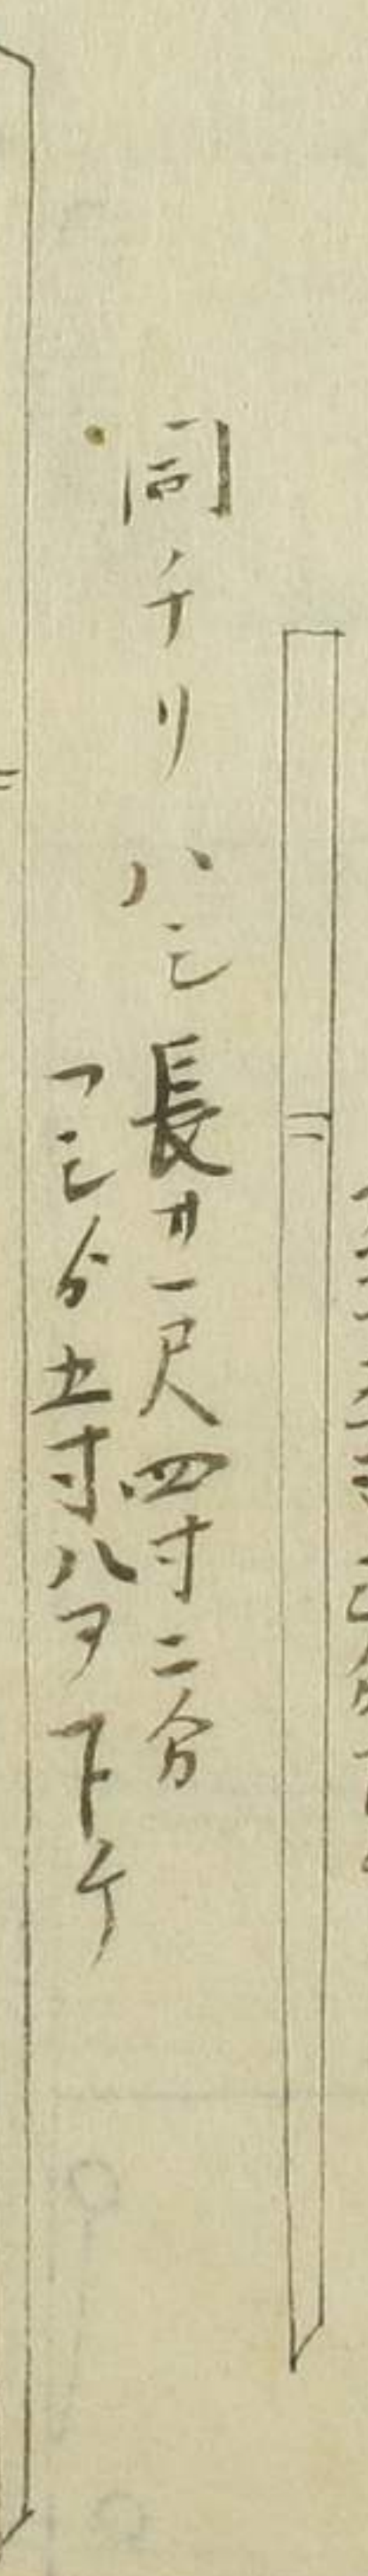 同チリハシ長サ一尺四寸二分
フシ分五寸八ヲ下ケ